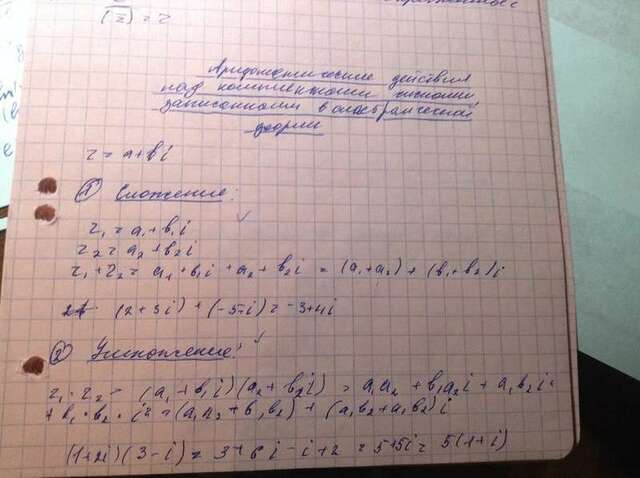 (z̅) = z
Арифметические действия
над комплексными числами,
записанными в алгебраической
форме
z = a + bi
① Сложение:
z₁ = a₁ + b₁i
z₂ = a₂ + b₂i
z₁ + z₂ = a₁ + b₁i + a₂ + b₂i = (a₁ + a₂) + (b₁ + b₂)i
(2 + 3i) + (-5+i) = -3+4i
② Умножение:
z₁ · z₂ = (a₁ + b₁i)(a₂ + b₂i) = a₁a₂ + b₁a₂i + a₁b₂i +
+ b₁ · b₂ · i² = (a₁a₂ + b₁b₂) + (a₁b₂ + a₁b₂)i
(1+2i)(3-i) = 3+6i-i+2 = 5+5i = 5(1+i)